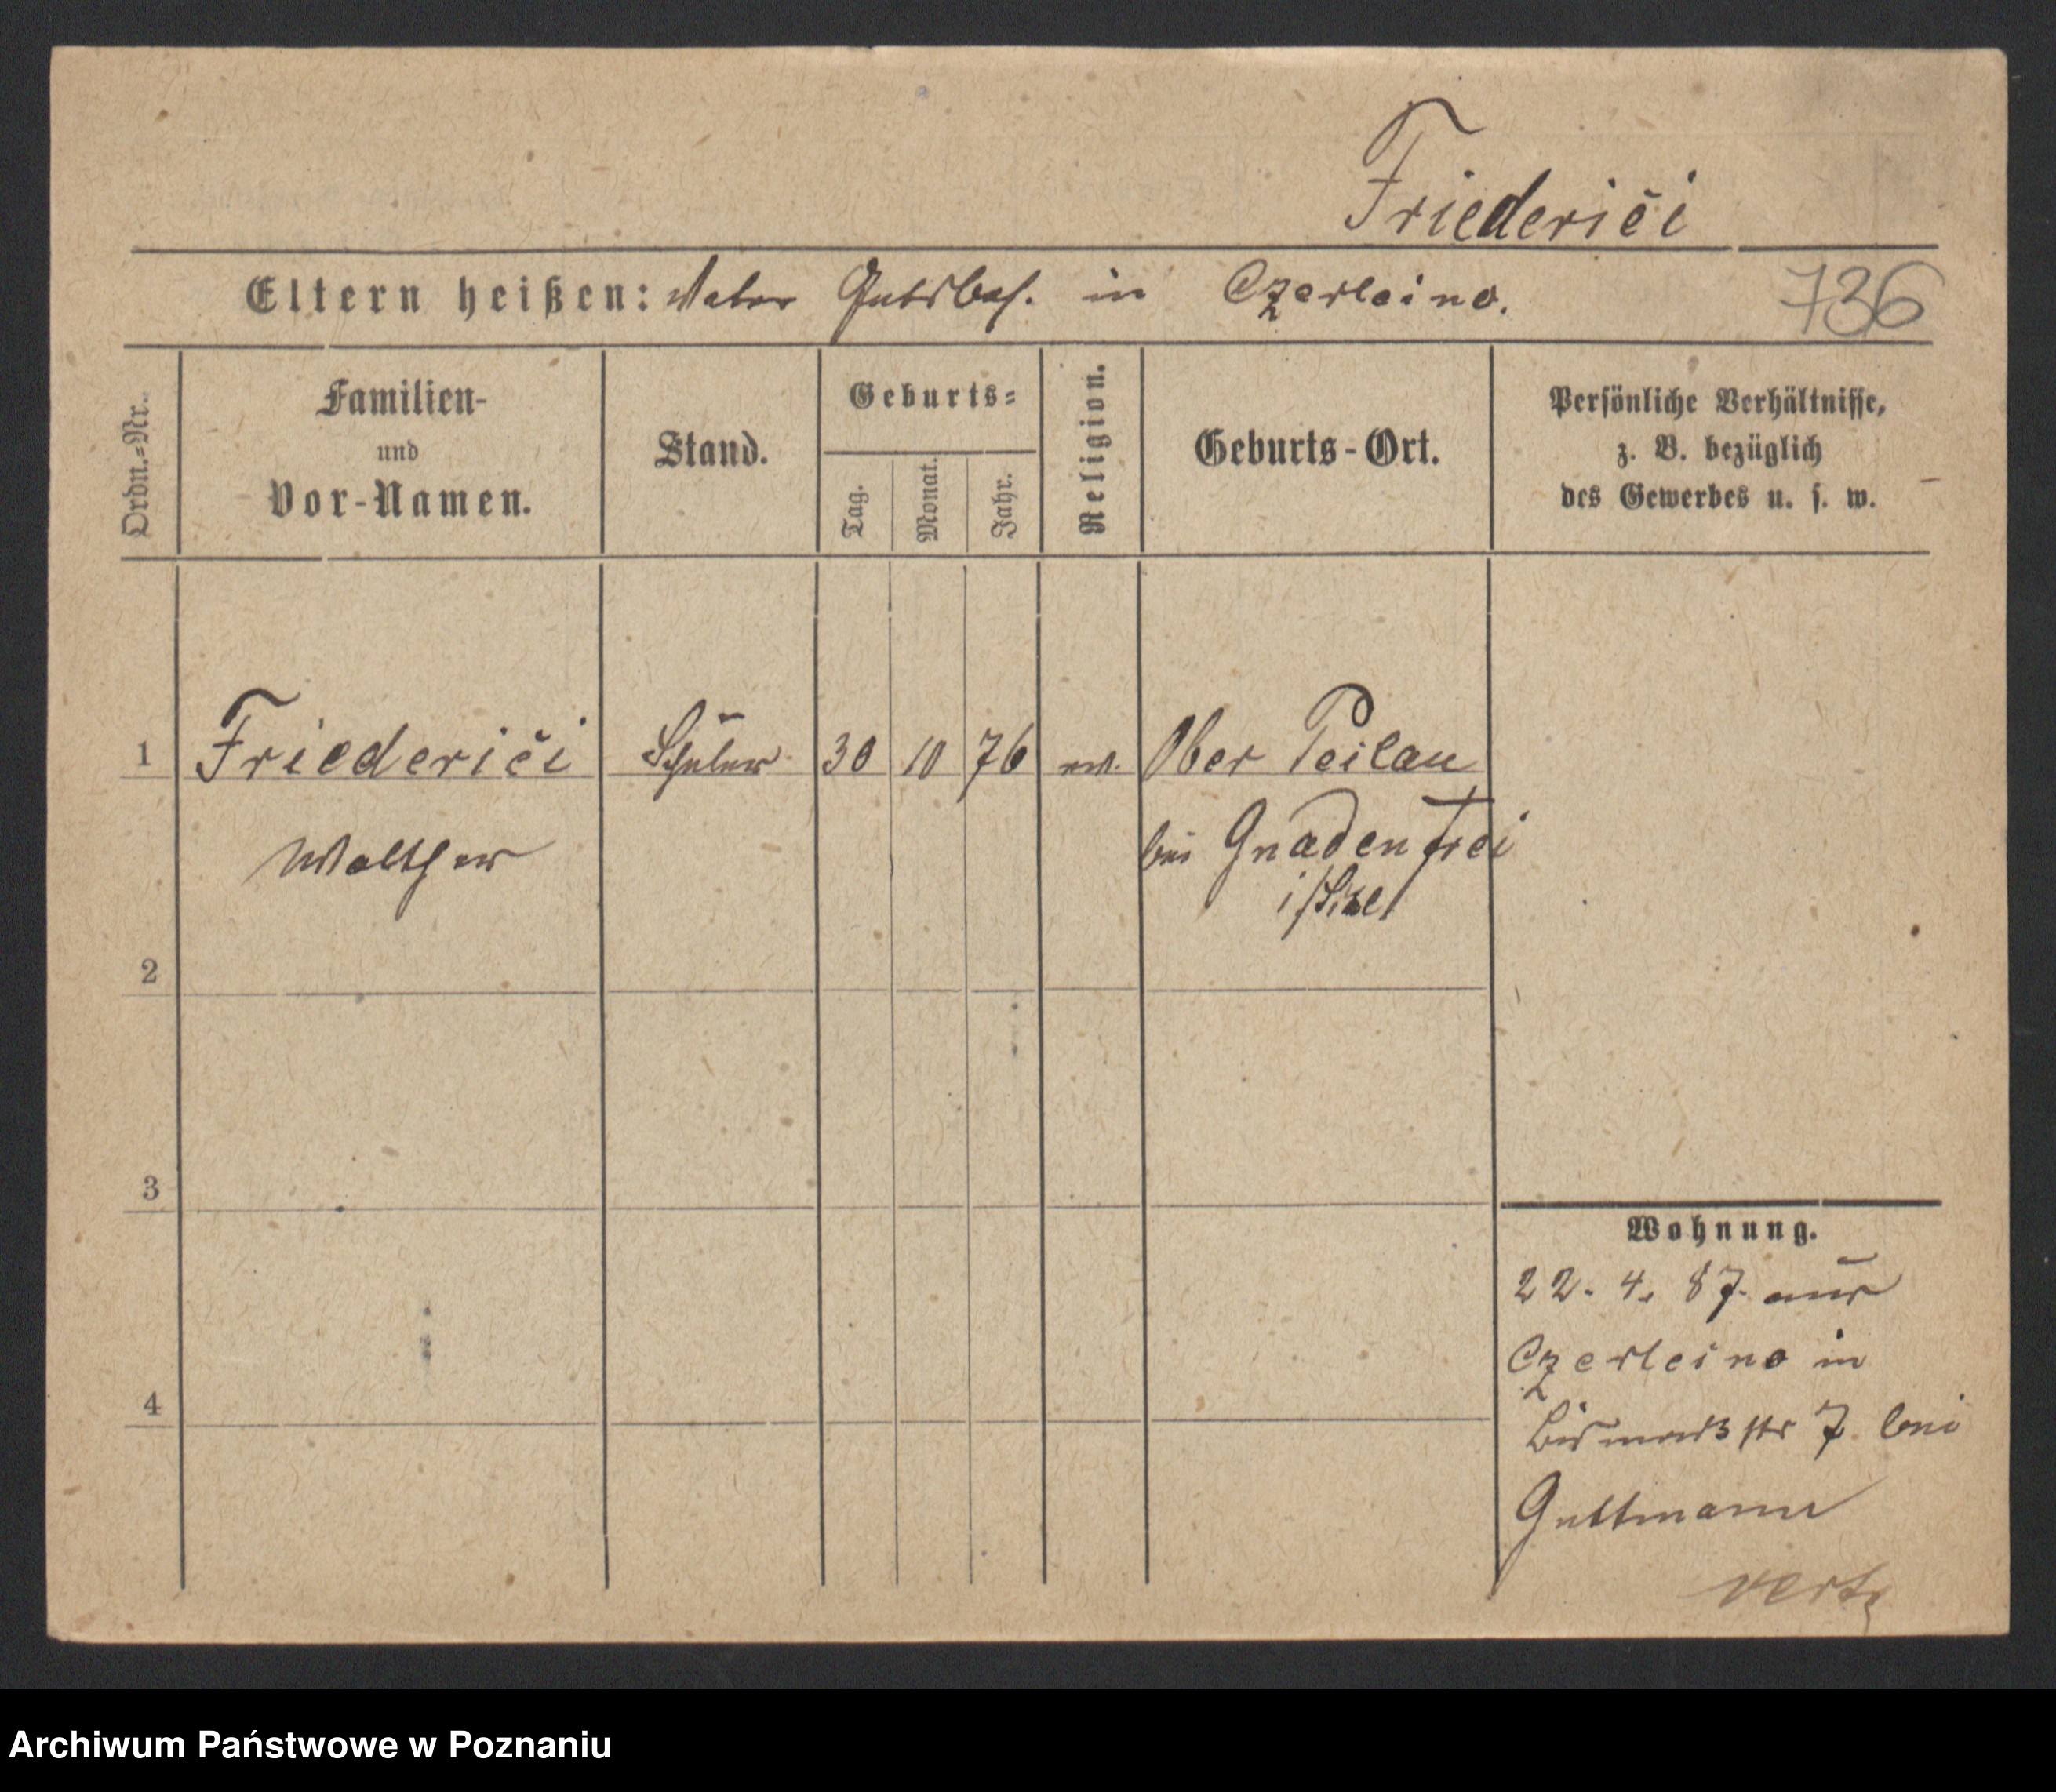 Friederici
Eltern heißen: Vater Gutsbes. in Czerleino.
736
Ordn.-Nr.
Familien-
und
Vor-Namen.
Stand.
Geburts-
Tag.
Monat.
Jahr.
Religion.
Geburts-Ort.
Persönliche Verhältnisse,
z. B. bezüglich
des Gewerbes u. s. w.
1 Friederici Schüler 30 10 76 ev. Ober Peilau
Walther bei Gnadenfrei
2
3
4
Wohnung.
22. 4. 87. aus
Czerleino in
Bismarkstr 7 bei
Guttmann
vertz
Archiwum Państwowe w Poznaniu